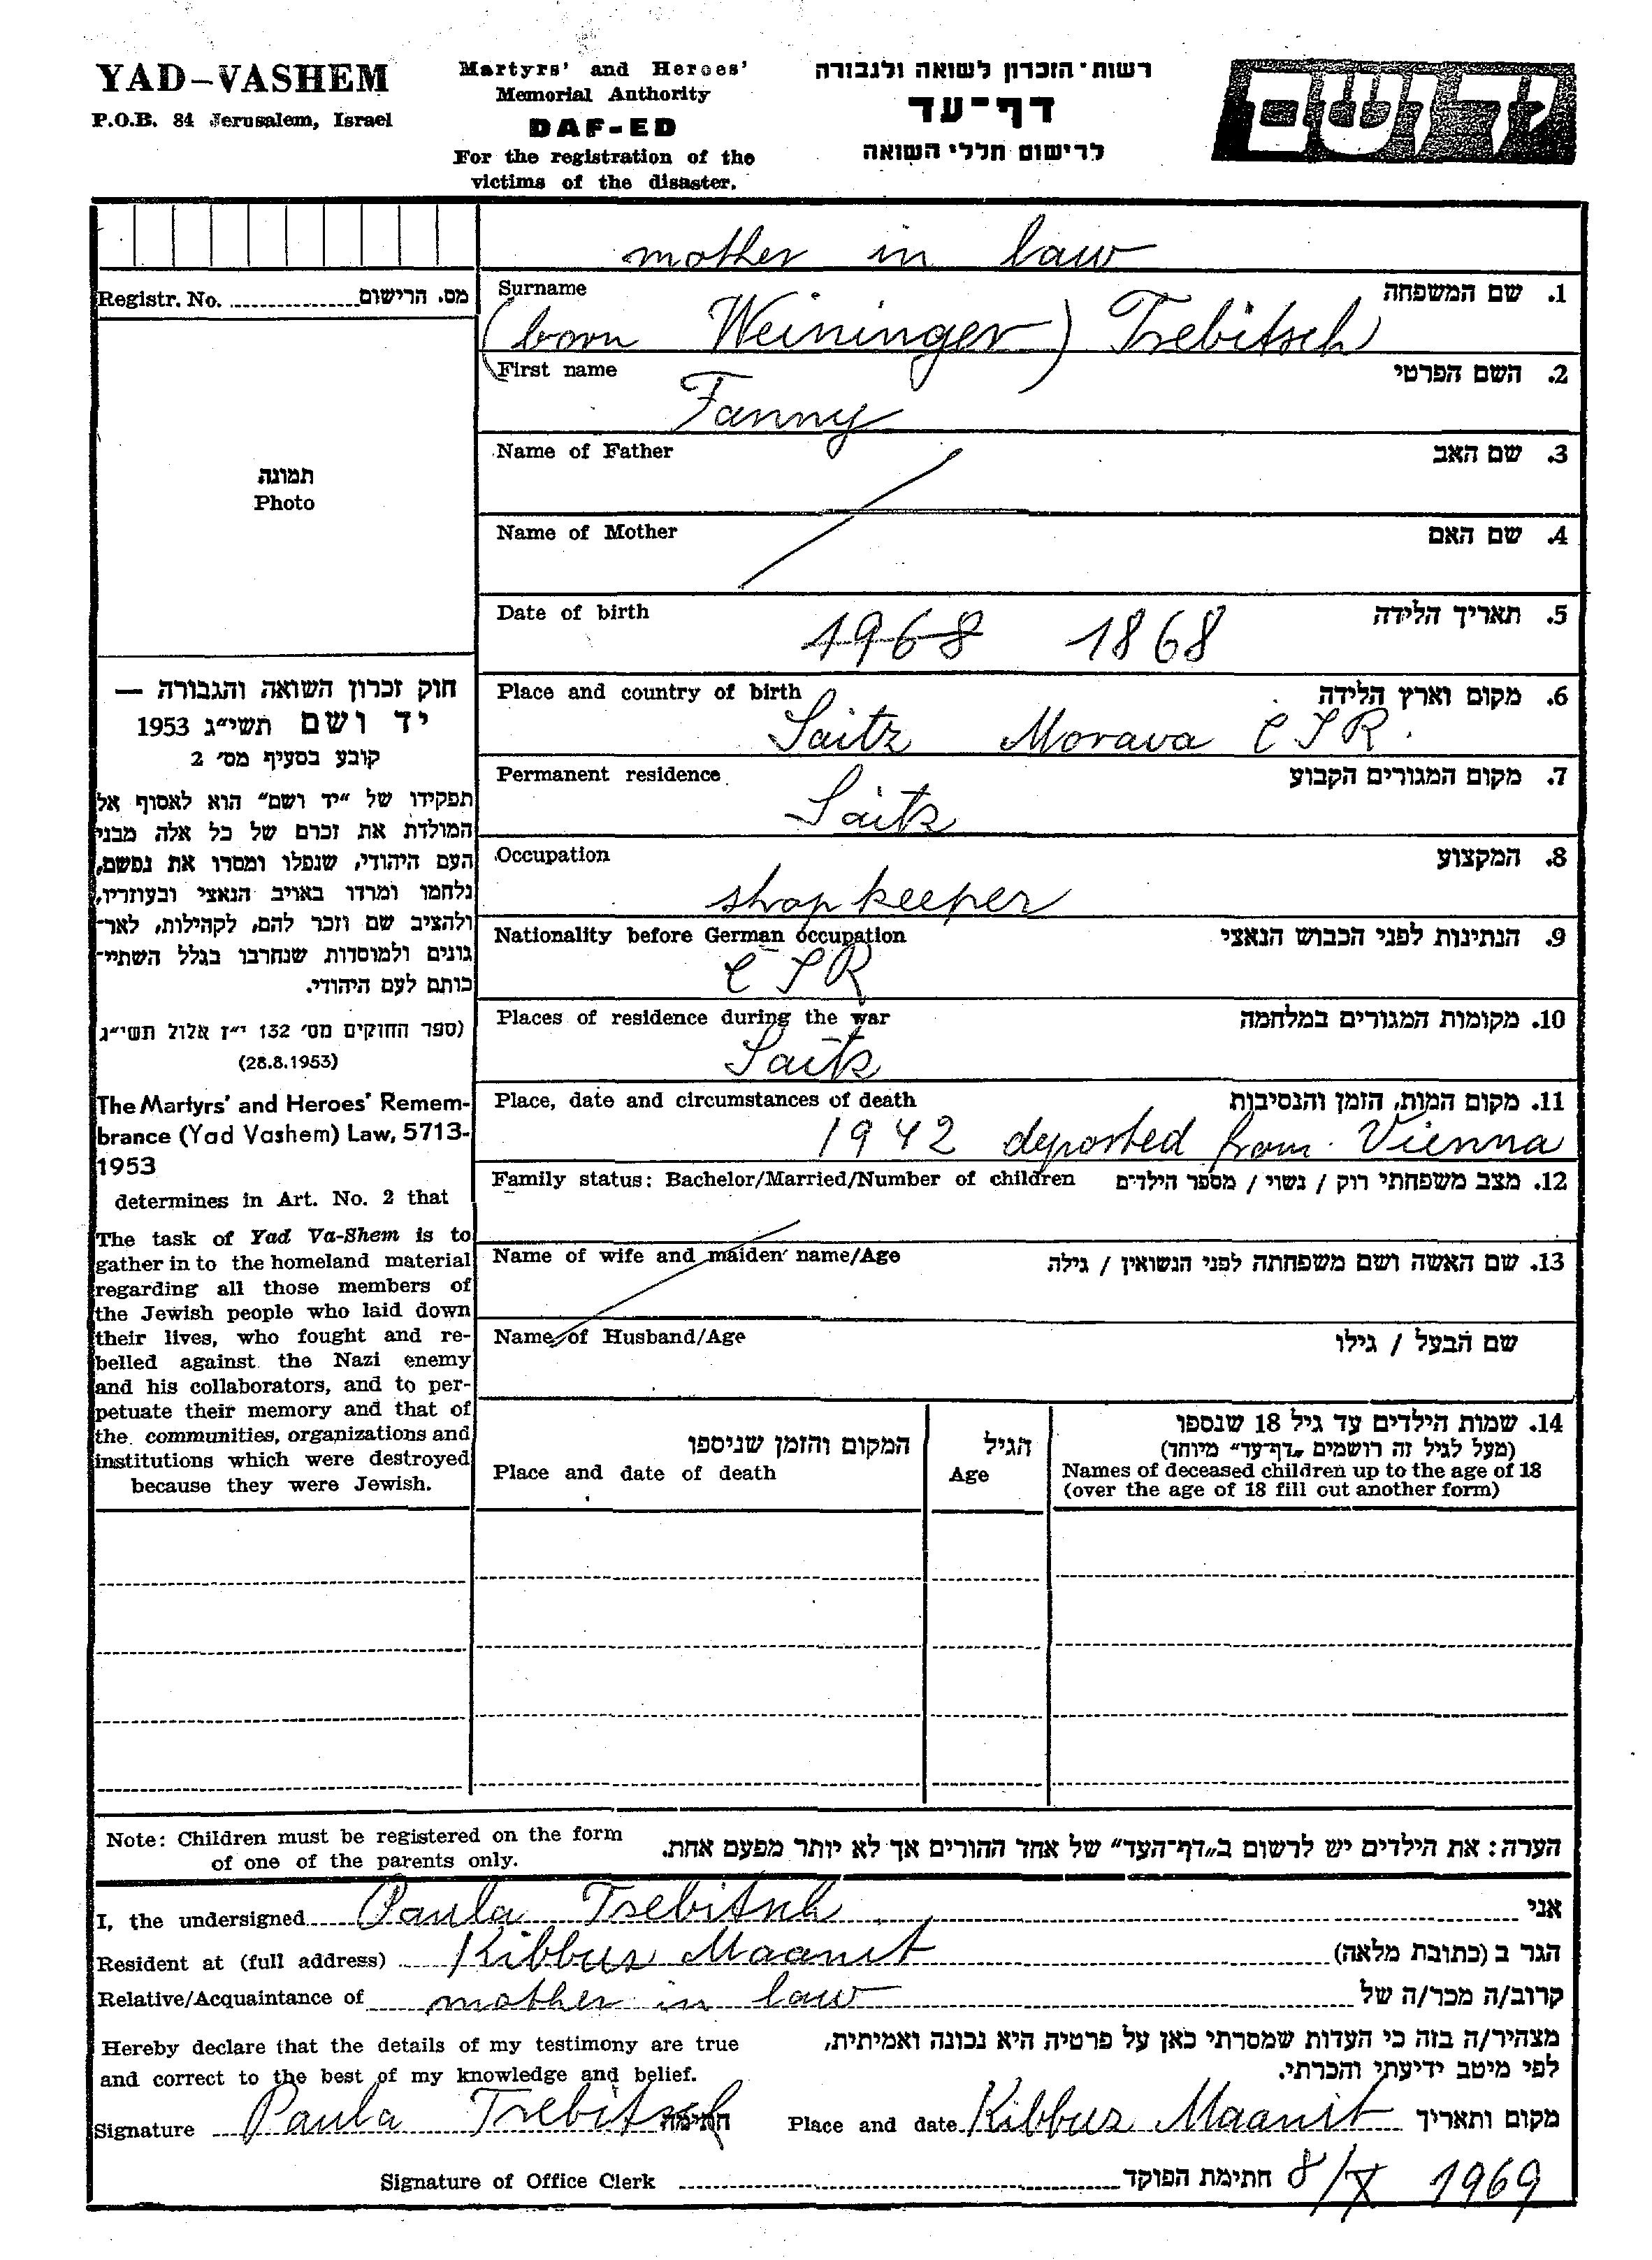 YAD-VASHEM
P.O.B. 84 Jerusalem, Israel
Martyrs' and Heroes'
Memorial Authority
DAF-ED
For the registration of the
victims of the disaster.
רשות־הזכרון לשואה ולגבורה
דף־עד
לרישום חללי השואה
יד ושם
mother in law
Registr. No. מס. הרישום
Surname 1. שם המשפחה
(born Weininger) Trebitsch
First name 2. השם הפרטי
Fanny
Name of Father 3. שם האב
Name of Mother 4. שם האם
Date of birth 5. תאריך הלידה
1968 1868
Place and country of birth 6. מקום וארץ הלידה
Saitz Morava CSR.
Permanent residence 7. מקום המגורים הקבוע
Saitz
Occupation 8. המקצוע
shopkeeper
Nationality before German occupation 9. הנתינות לפני הכבוש הנאצי
CSR
Places of residence during the war 10. מקומות המגורים במלחמה
Saitz
Place, date and circumstances of death 11. מקום המות, הזמן והנסיבות
1942 deported from Vienna
Family status: Bachelor/Married/Number of children 12. מצב משפחתי רוק / נשוי / מספר הילדים
Name of wife and maiden name/Age 13. שם האשה ושם משפחתה לפני הנשואין / גילה
Name of Husband/Age שם הבעל / גילו
תמונה
Photo
חוק זכרון השואה והגבורה —
יד ושם תשי״ג 1953
קובע בסעיף מס׳ 2
תפקידו של ״יד ושם״ הוא לאסוף אל
המולדת את זכרם של כל אלה מבני
העם היהודי, שנפלו ומסרו את נפשם,
נלחמו ומרדו באויב הנאצי ובעוזריו,
ולהציב שם וזכר להם, לקהילות, לאר־
גונים ולמוסדות שנחרבו בגלל השתיי־
כותם לעם היהודי.
(ספר החוקים מס׳ 132 י״ז אלול תשי״ג
(28.8.1953)
The Martyrs' and Heroes' Remem-
brance (Yad Vashem) Law, 5713-
1953
determines in Art. No. 2 that
The task of Yad Va-Shem is to
gather in to the homeland material
regarding all those members of
the Jewish people who laid down
their lives, who fought and re-
belled against the Nazi enemy
and his collaborators, and to per-
petuate their memory and that of
the communities, organizations and
institutions which were destroyed
because they were Jewish.
המקום והזמן שניספו
Place and date of death
הגיל
Age
14. שמות הילדים עד גיל 18 שנספו
(מעל לגיל זה רושמים „דף־עד״ מיוחד)
Names of deceased children up to the age of 18
(over the age of 18 fill out another form)
Note: Children must be registered on the form
of one of the parents only.
הערה: את הילדים יש לרשום ב„דף־העד״ של אחד ההורים אך לא יותר מפעם אחת.
I, the undersigned Paula Trebitsch אני
Resident at (full address) Kibbuz Maanit הגר ב (כתובת מלאה)
Relative/Acquaintance of mother in law קרוב/ה מכר/ה של
Hereby declare that the details of my testimony are true
and correct to the best of my knowledge and belief.
מצהיר/ה בזה כי העדות שמסרתי כאן על פרטיה היא נכונה ואמיתית,
לפי מיטב ידיעתי והכרתי.
Signature Paula Trebitsch חתימה Place and date Kibbuz Maanit מקום ותאריך
Signature of Office Clerk חתימת הפוקד 8/X 1969